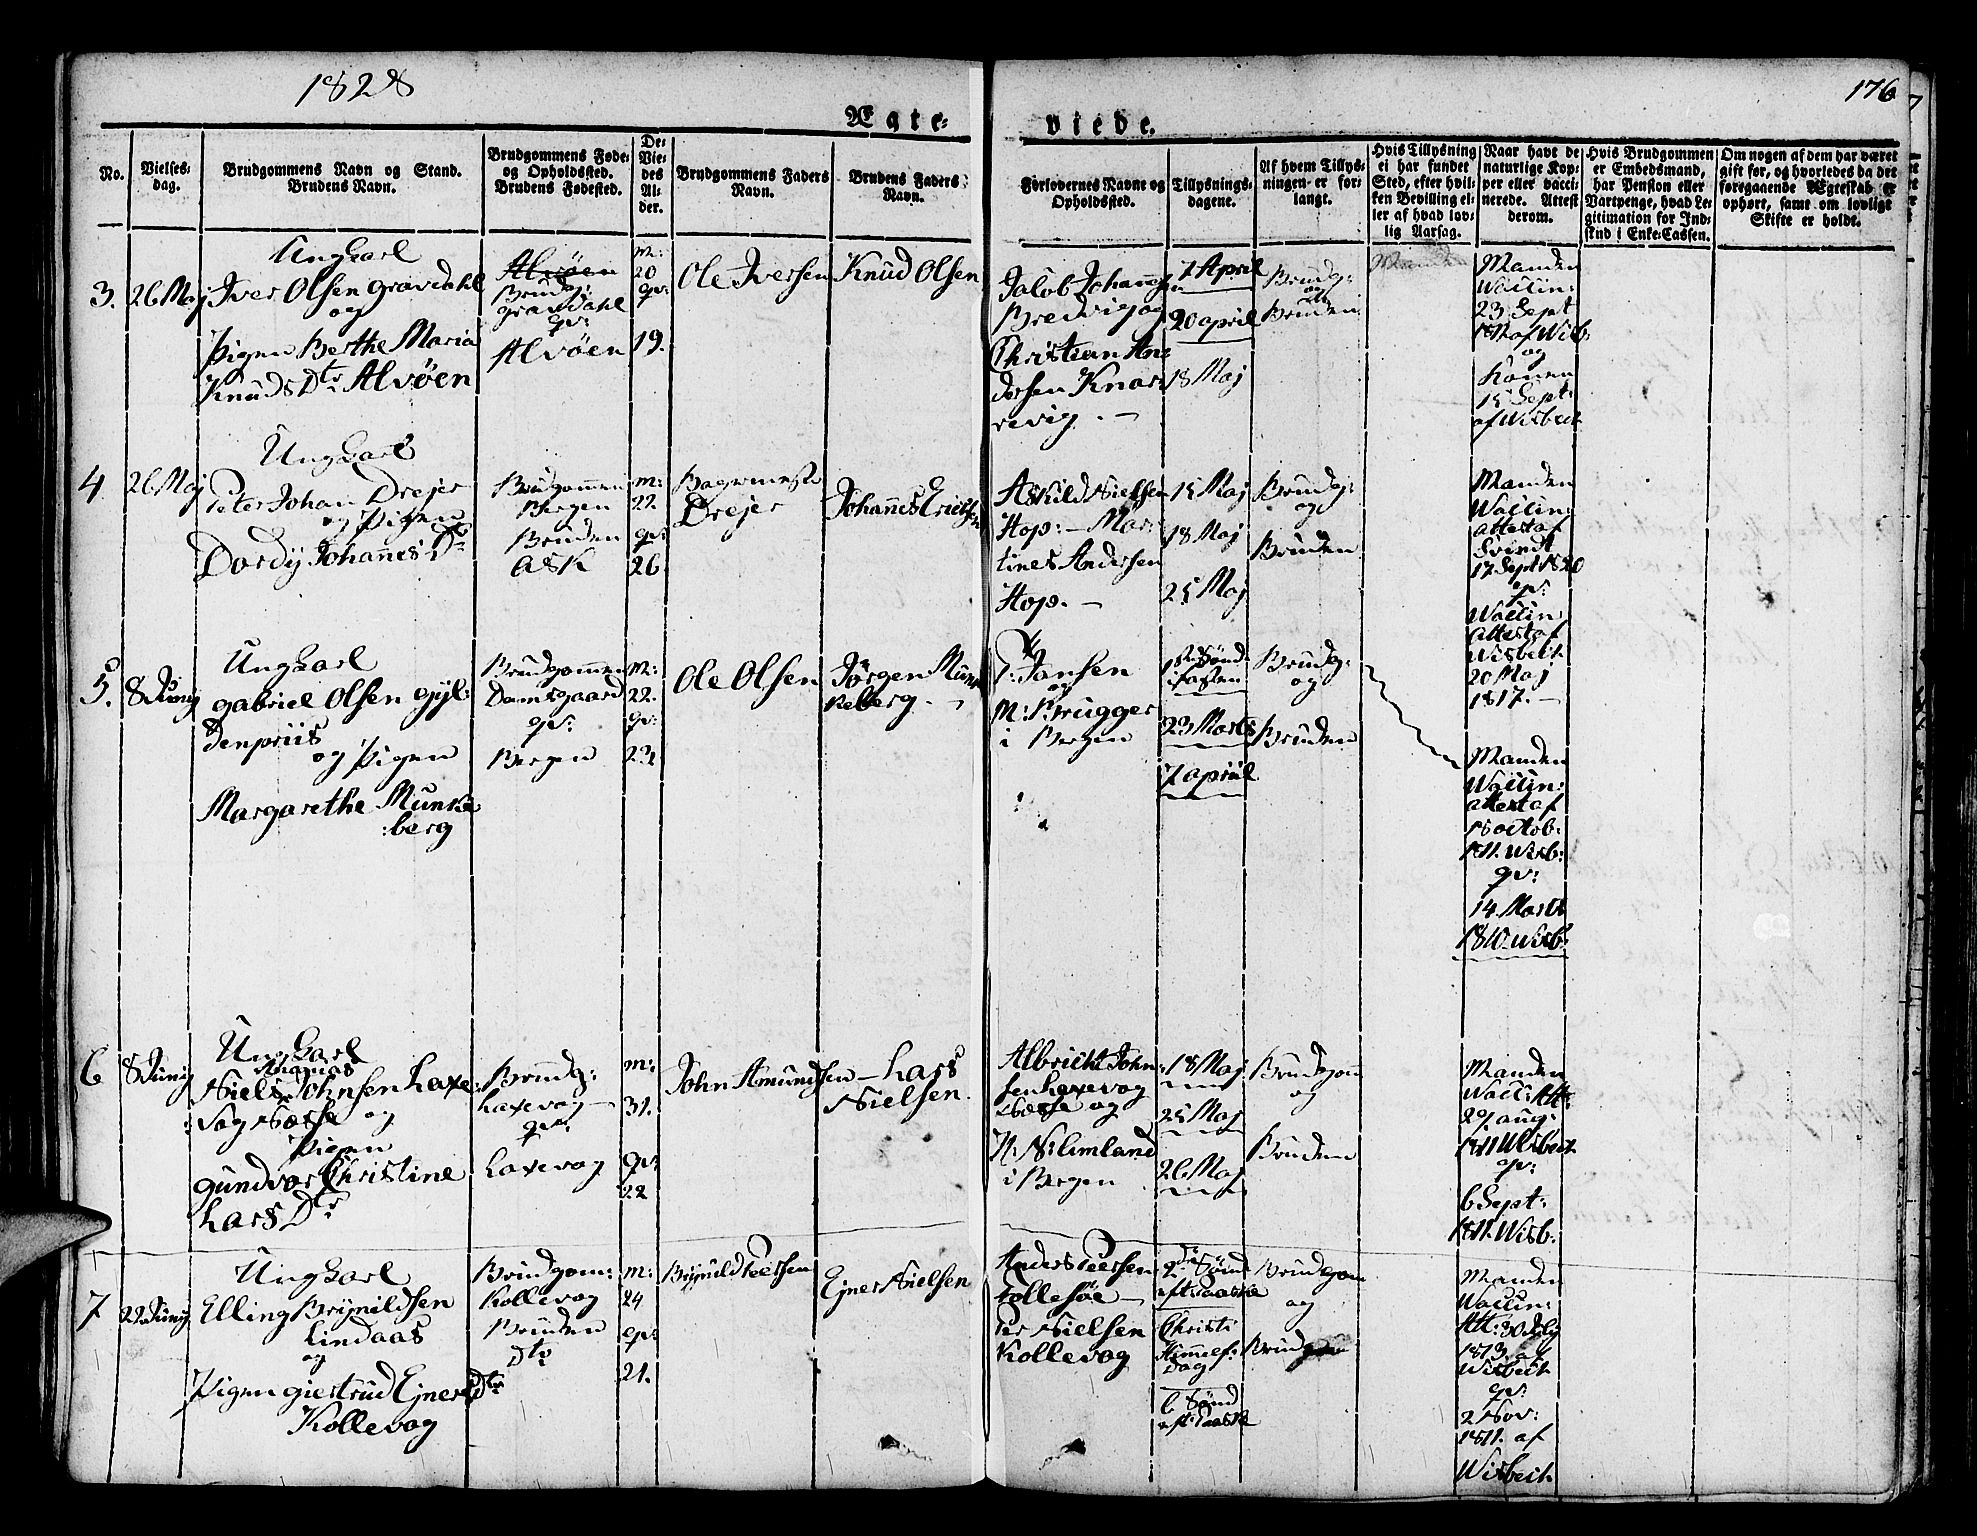 1828
176
Ægte-
viede.
No.
Vielses-
dag.
Brudgommens Navn og Stand.
Brudens Navn.
Brudgommens Føde-
og Opholdssted.
Brudens Fødested.
De
Vie-
des
Al-
der.
Brudgommens Faders
Navn.
Brudens Faders
Navn.
Forlovernes Navne og
Opholdssted.
Tillysnings-
dagene.
Af hvem Tillys-
ningen er for-
langt.
Hvis Tillysning
ei har fundet
Sted, efter hvil-
ken Bevilling el-
ler af hvad lov-
lig Aarsag.
Naar havt de
naturlige Kop-
per eller vacci-
nerede. Attest
derom.
Hvis Brudgommen
er Embedsmand,
har Pension eller
Vartpenge, hvad Le-
gitimation for Ind-
skud i Enke-Cassen.
Om nogen af dem har været
gift før, og hvorledes da det
foregaaende Ægteskab er
ophørt, samt om lovligt
Skifte er holdt.
3.
26 Maj
Ungkarl
Iver Olsen Gravdahl
og
Pigen Berthe Maria
Knuds Dtr Alvøen
Alvøen
Brudg:
Gravdahl
qv:
Alvøen
m:
20
qv:
19.
Ole Iversen
Knud Olsen
Jacob Johannes
Bredvig og
Christian An:
dersen Knar:
revig. —
7 April
20 april
18 Maj
Brudg:
og
Bruden
Manden
Manden
Vaccin:
23 Sept
1811 af Wisb.
og
Konen
15 Sept:
af Wisbech
4.
26 Maj
Ungkarl
Peter Johan Drejer
og Pigen
Dordij Johannes Dtr
Brudgommen
Bergen
Bruden
Ask
m:
22.
qv:
26
Bagermester
Drejer
Johannes Ericksen
Askild Nielsen
Hop: — Mar:
tines Andersen
Hop. —
15 Maj
18 Maj
25 Maj
Brudg:
og
Bruden
Manden
Vaccin:
attest af
Svindt
17 Sept 1820
qv:
Vaccin.
attest af
Wisbech
20 Maj
1817. —
5.
8 Junij
Ungkarl
Gabriel Olsen Gyl:
denpriis
og Pigen
Margarethe Munke
:berg
Brudgommen
Damsgaard
qv:
Bergen
m:
22.
qv:
23
Ole Olsen
Jørgen Munk
keberg. —
T: Jansen
og
M: Brugger
i Bergen
1ste Sønd
i fasten
23 Marts
7 april
Brudg:
og
Bruden
Manden
Vaccin:
attest af
18 octob:
1811. Wisb:
qv:
14 Marts
1810. Wisb:
6
8 Junij
Ungkarl
Niels Johnsen Laxe:
:vag Næsse og
Pigen
Gundvor Christine
Lars Dtr
Brudg:
Laxevag —
qv:
Laxevag
m:
31.
qv:
22
John Amundsen —
Lars
Nielsen.
Albricht John:
sen Laxevag
Næsse og
N: N: Limland
i Bergen
18 Maj
25 Maj
26 Maj
Brudgom
og
Bruden
Manden
Vacc: Att:
29 aug:
1811 Wisbech
qv:
6 Sept:
1811. Wisb:
7
22 Junij
Ungkarl
Elling Brynildsen
Lindaas
og
Pigen Giertrud Ejners Dtr
Kollevag
Brudgom:
Kollevag
Bruden
Dto
m:
24
qv:
21.
Brynild Peersen
Ejner Nielsen
Anders Peersen
Tollesøe —
Per Nielsen
Kollevag
2den Sønd
eft: Paaske
Christi
Himmelf:
Dag
6 Sønd
eft: Paaske
Brudgom
og
Bruden
Manden
Vaccin:
Att: 30 July
1813. af
Wisbech
qv:
2 Nov:
1811. af
Wisbech